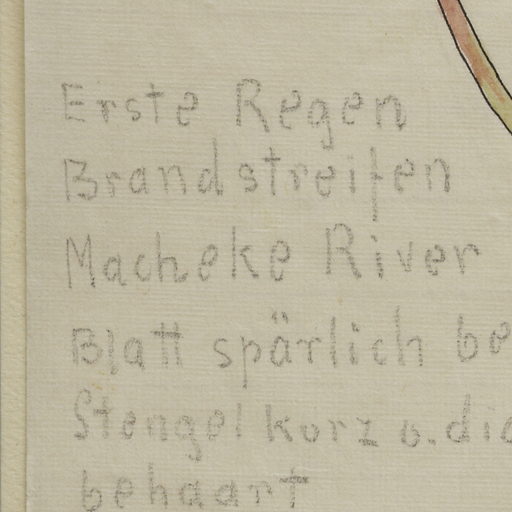 Erste Regen
Brandstreifen
Macheke River
Blatt spärlich be
Stengel kurz u. dic
behaart